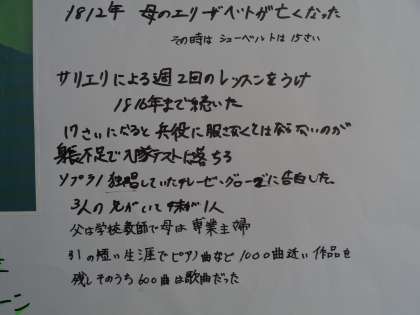 1812年 母のエリザベットが亡くなった
その時は シューベルトは 15さい
サリエリによる週2回のレッスンをうけ
1816年まで続いた
17さいになると 兵役に服さなくてはならないのが
身長不足で入隊テストに落ちる
ソプラノ独唱していたテレーゼ・グローブに告白した。
3人の兄がいて妹が1人
父は学校教師で母は専業主婦
31の短い生涯でピアノ曲など1000曲近い作品を
残しそのうち600曲は歌曲だった
ーン